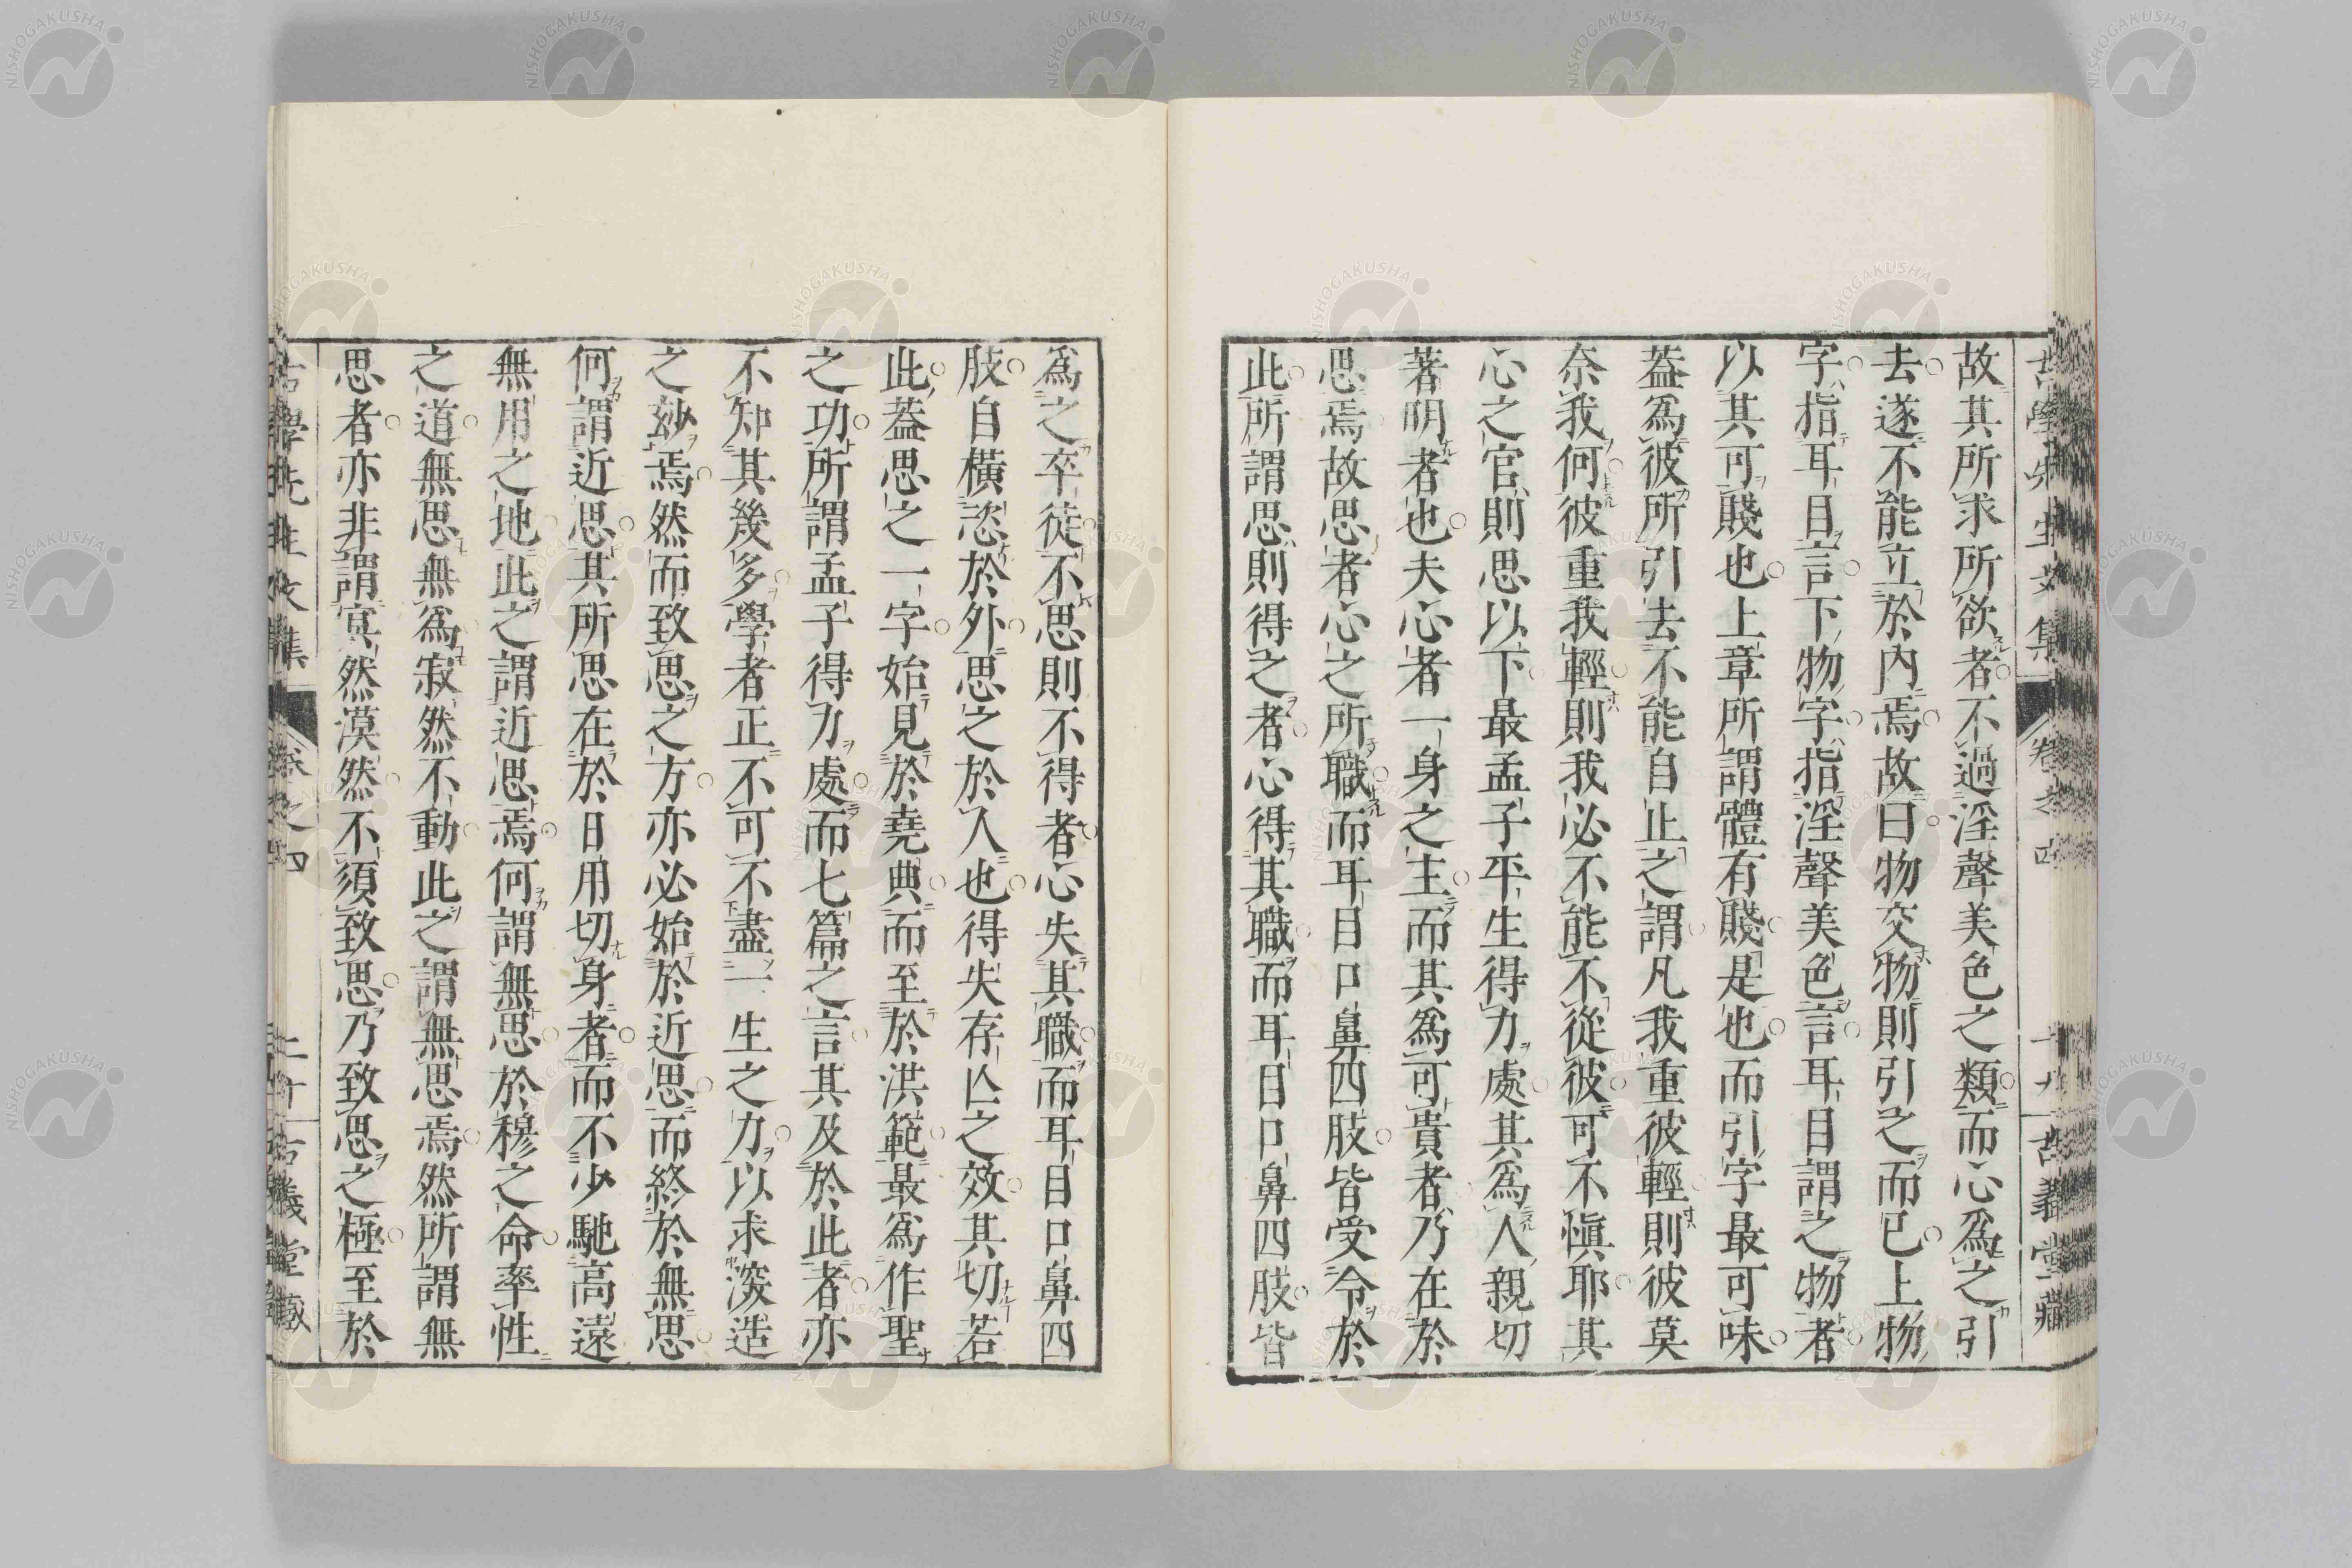 古學先生文集 卷之四 十九 古義堂藏
故其所求所欲者不過淫聲美色之類而心爲之引
去遂不能立於內焉故曰物交物則引之而已上物
字指耳目言下物字指淫聲美色言耳目謂之物者
以其可賤也上章所謂體有賤是也而引字最可味
葢爲彼所引去不能自止之謂凡我重彼輕則彼莫
奈我何彼重我輕則我必不能不從彼可不愼耶其
心之官則思以下最孟子平生得力處其爲人親切
著明者也夫心者一身之主而其爲可貴者乃在於
思焉故思者心之所職而耳目口鼻四肢皆受令於
此所謂思則得之者心得其職而耳目口鼻四肢皆
爲之卒徒不思則不得者心失其職而耳目口鼻四
肢自橫恣於外思之於人也得失存亾之效其切若
此葢思之一字始見於堯典而至於洪範最爲作聖
之功所謂孟子得力處而七篇之言其及於此者亦
不知其幾多學者正不可不盡一生之力以求深造
之玅焉然而致思之方亦必始於近思而終於無思
何謂近思其所思在於日用切身者而不少馳高遠
無用之地此之謂近思焉何謂無思於穆之命率性
之道無思無爲寂然不動此之謂無思焉然所謂無
思者亦非謂冥然漠然不須致思乃致思之極至於
古學先生文集 卷之四 二十 古義堂藏
NISHOGAKUSHA